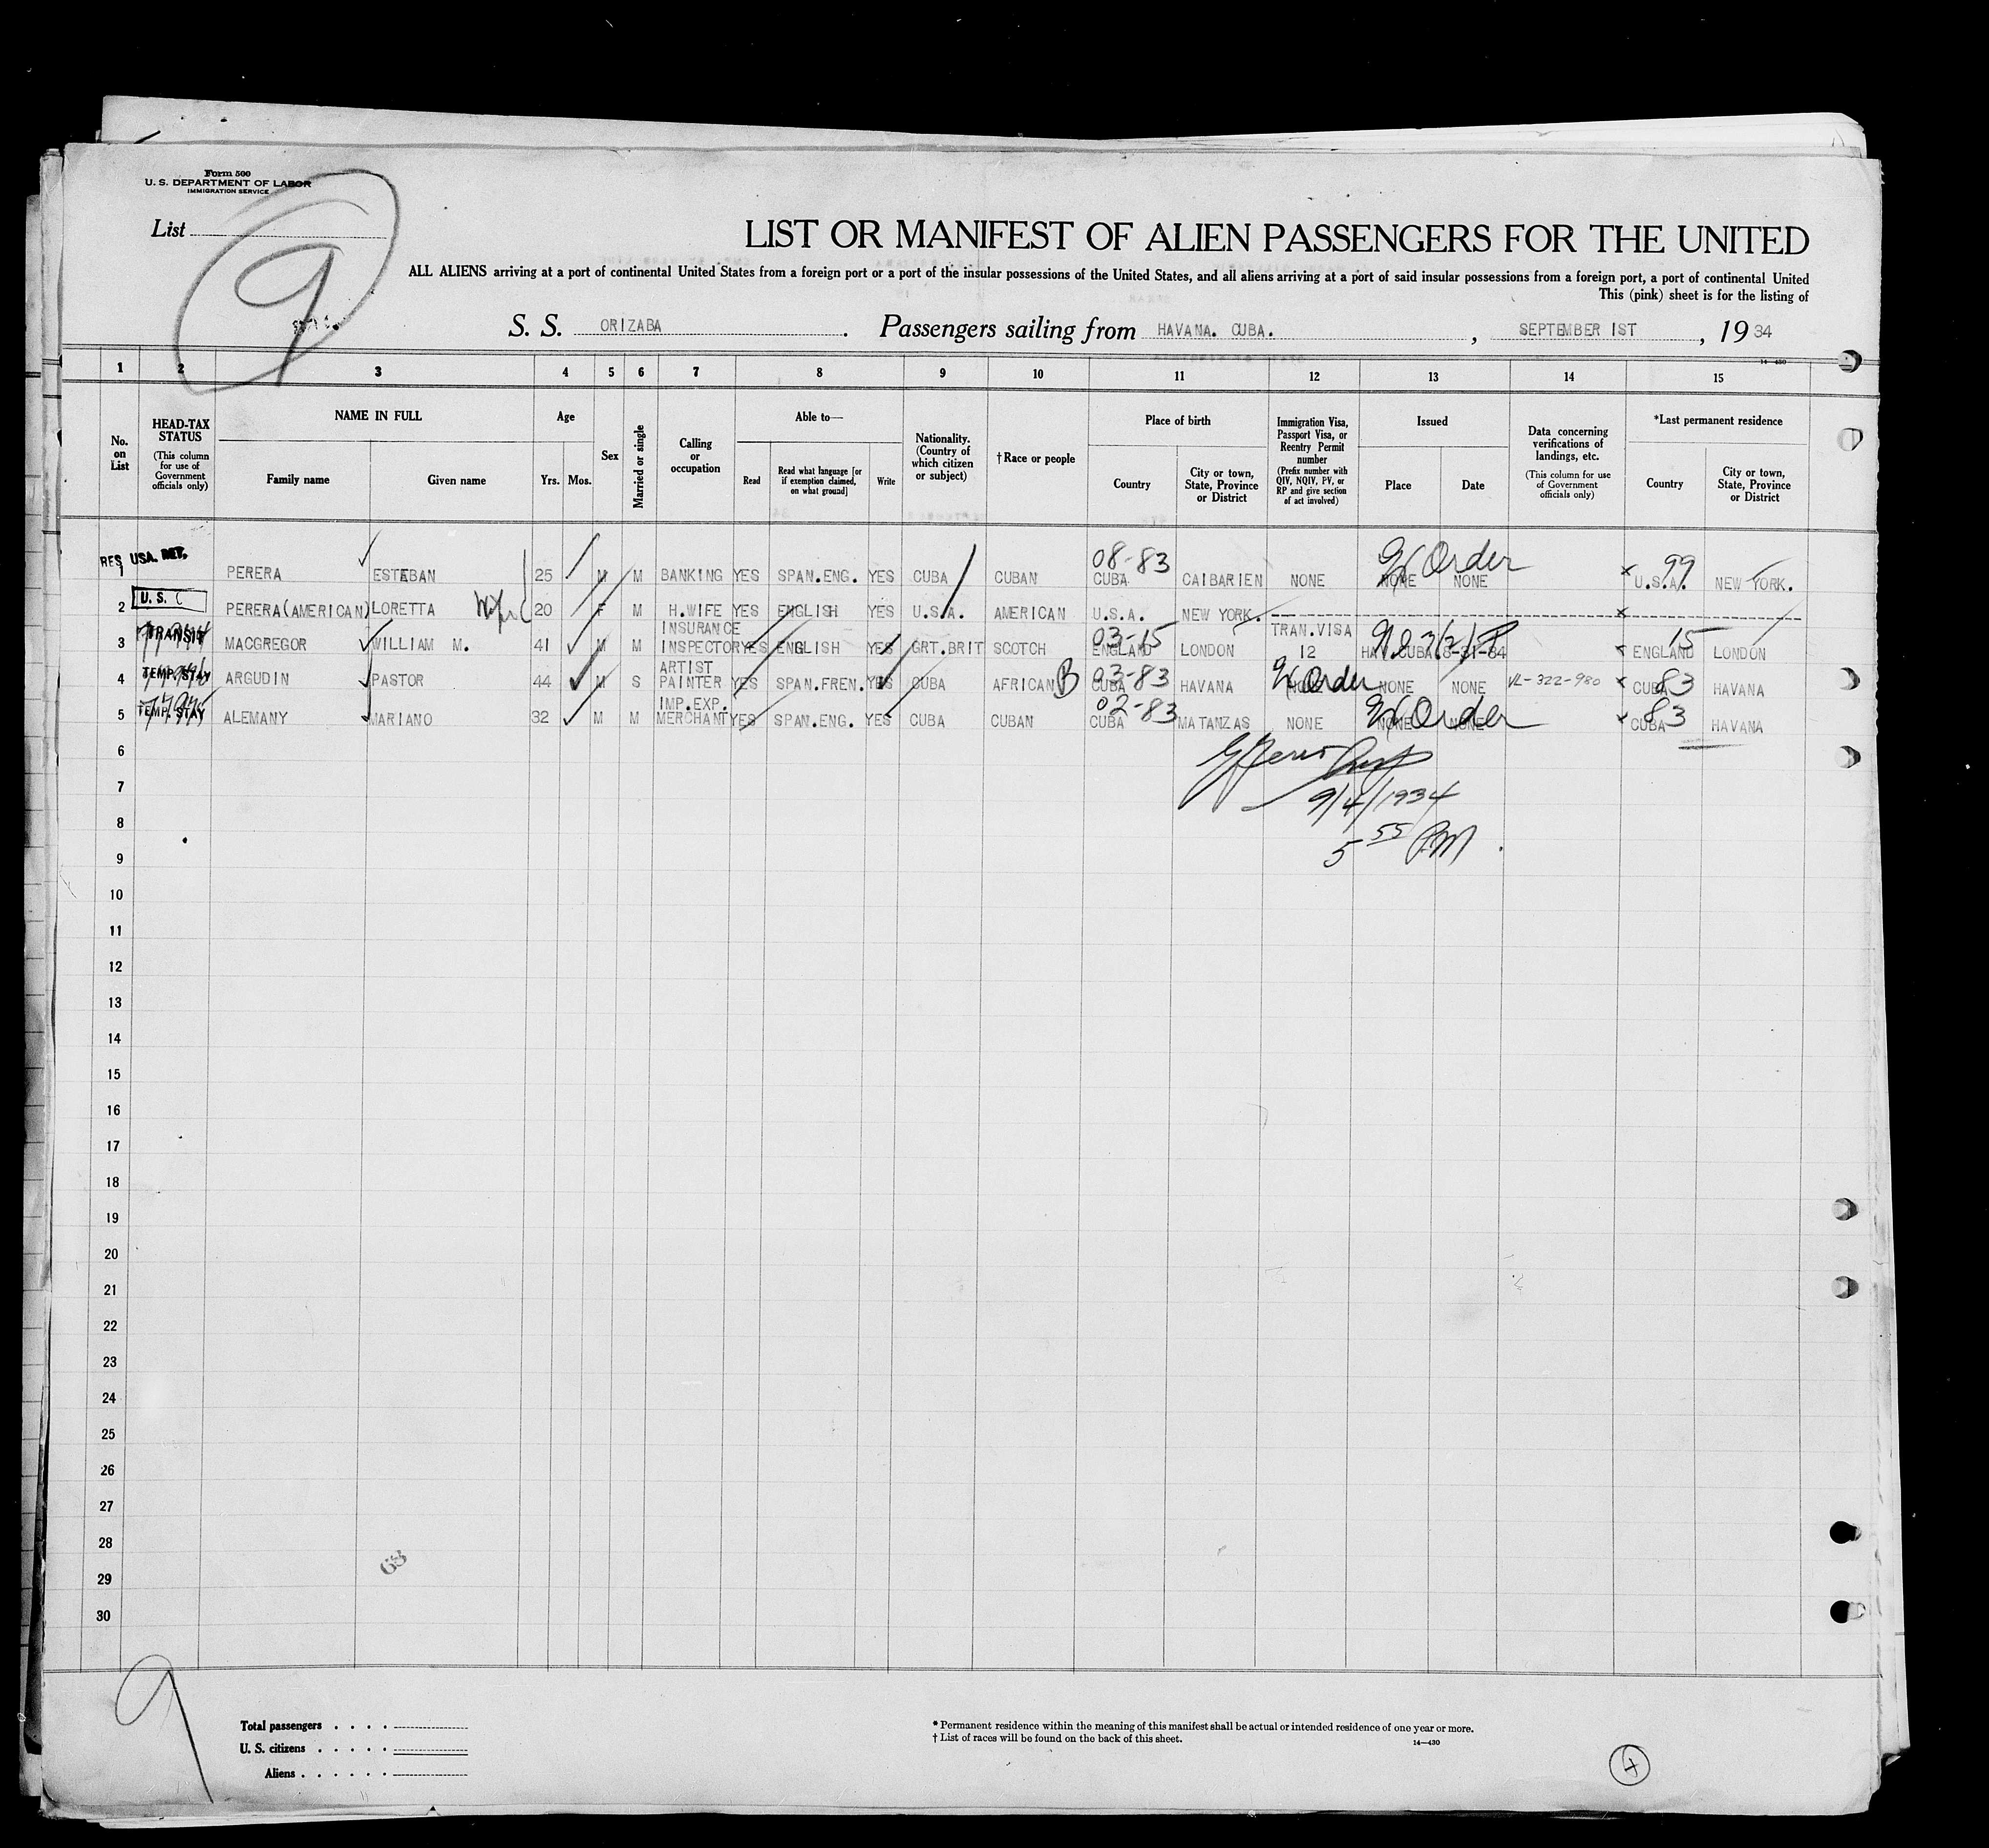 Form 500
U. S. DEPARTMENT OF LABOR
IMMIGRATION SERVICE
List
9
LIST OR MANIFEST OF ALIEN PASSENGERS FOR THE UNITED
ALL ALIENS arriving at a port of continental United States from a foreign port or a port of the insular possessions of the United States, and all aliens arriving at a port of said insular possessions from a foreign port, a port of continental United
This (pink) sheet is for the listing of
S. S. ORIZABA . Passengers sailing from HAVANA. CUBA. , SEPTEMBER 1ST , 19 34
14-430
1 2 3 4 5 6 7 8 9 10 11 12 13 14 15
No. on List
HEAD-TAX STATUS
(This column for use of Government officials only)
NAME IN FULL
Family name Given name
Age
Yrs. Mos.
Sex
Married or single
Calling or occupation
Able to—
Read
Read what language [or if exemption claimed, on what ground]
Write
Nationality. (Country of which citizen or subject)
†Race or people
Place of birth
Country
City or town, State, Province or District
Immigration Visa, Passport Visa, or Reentry Permit number
(Prefix number with QIV, NQIV, PV, or RP and give section of act involved)
Issued
Place Date
Data concerning verifications of landings, etc.
(This column for use of Government officials only)
*Last permanent residence
Country
City or town, State, Province or District
RES USA. RET.
08-83 Order 99
1 PERERA ESTEBAN 25 M M BANKING YES SPAN.ENG. YES CUBA CUBAN CUBA CAIBARIEN NONE NONE NONE x U.S.A. NEW YORK.
U. S. C
2 PERERA(AMERICAN) LORETTA Wife 20 F M H.WIFE YES ENGLISH YES U.S.A. AMERICAN U.S.A. NEW YORK. x
TRANSIT INSURANCE 03-15 TRAN.VISA 15
3 MACGREGOR WILLIAM M. 41 M M INSPECTOR YES ENGLISH YES GRT.BRIT SCOTCH ENGLAND LONDON 12 HAV.CUBA. 8-31-34 x ENGLAND LONDON
TEMP. STAY ARTIST 03-83 Order 83
4 ARGUDIN PASTOR 44 M S PAINTER YES SPAN.FREN. YES CUBA AFRICAN B CUBA HAVANA NONE NONE NONE VL-322-980 x CUBA HAVANA
TEMP. STAY IMP.EXP. 02-83 Order 83
5 ALEMANY MARIANO 32 M M MERCHANT YES SPAN.ENG. YES CUBA CUBAN CUBA MATANZAS NONE NONE NONE x CUBA HAVANA
6
7
9/4/1934
8
5 55 PM
9
10
11
12
13
14
15
16
17
18
19
20
21
22
23
24
25
26
27
28
63
29
30
9
Total passengers . . . .
U. S. citizens . . . . .
Aliens . . . . . .
* Permanent residence within the meaning of this manifest shall be actual or intended residence of one year or more.
† List of races will be found on the back of this sheet.
14—430
4